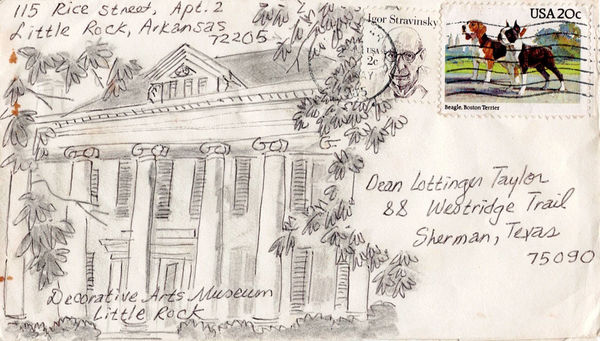 115 Rice Street, Apt. 2
Little Rock, Arkansas
72205
Igor Stravinsky
USA
2c
USA 20c
Beagle, Boston Terrier
Dean Lottinger Taylor
88 Westridge Trail
Sherman, Texas
75090
Decorative Arts Museum
Little Rock